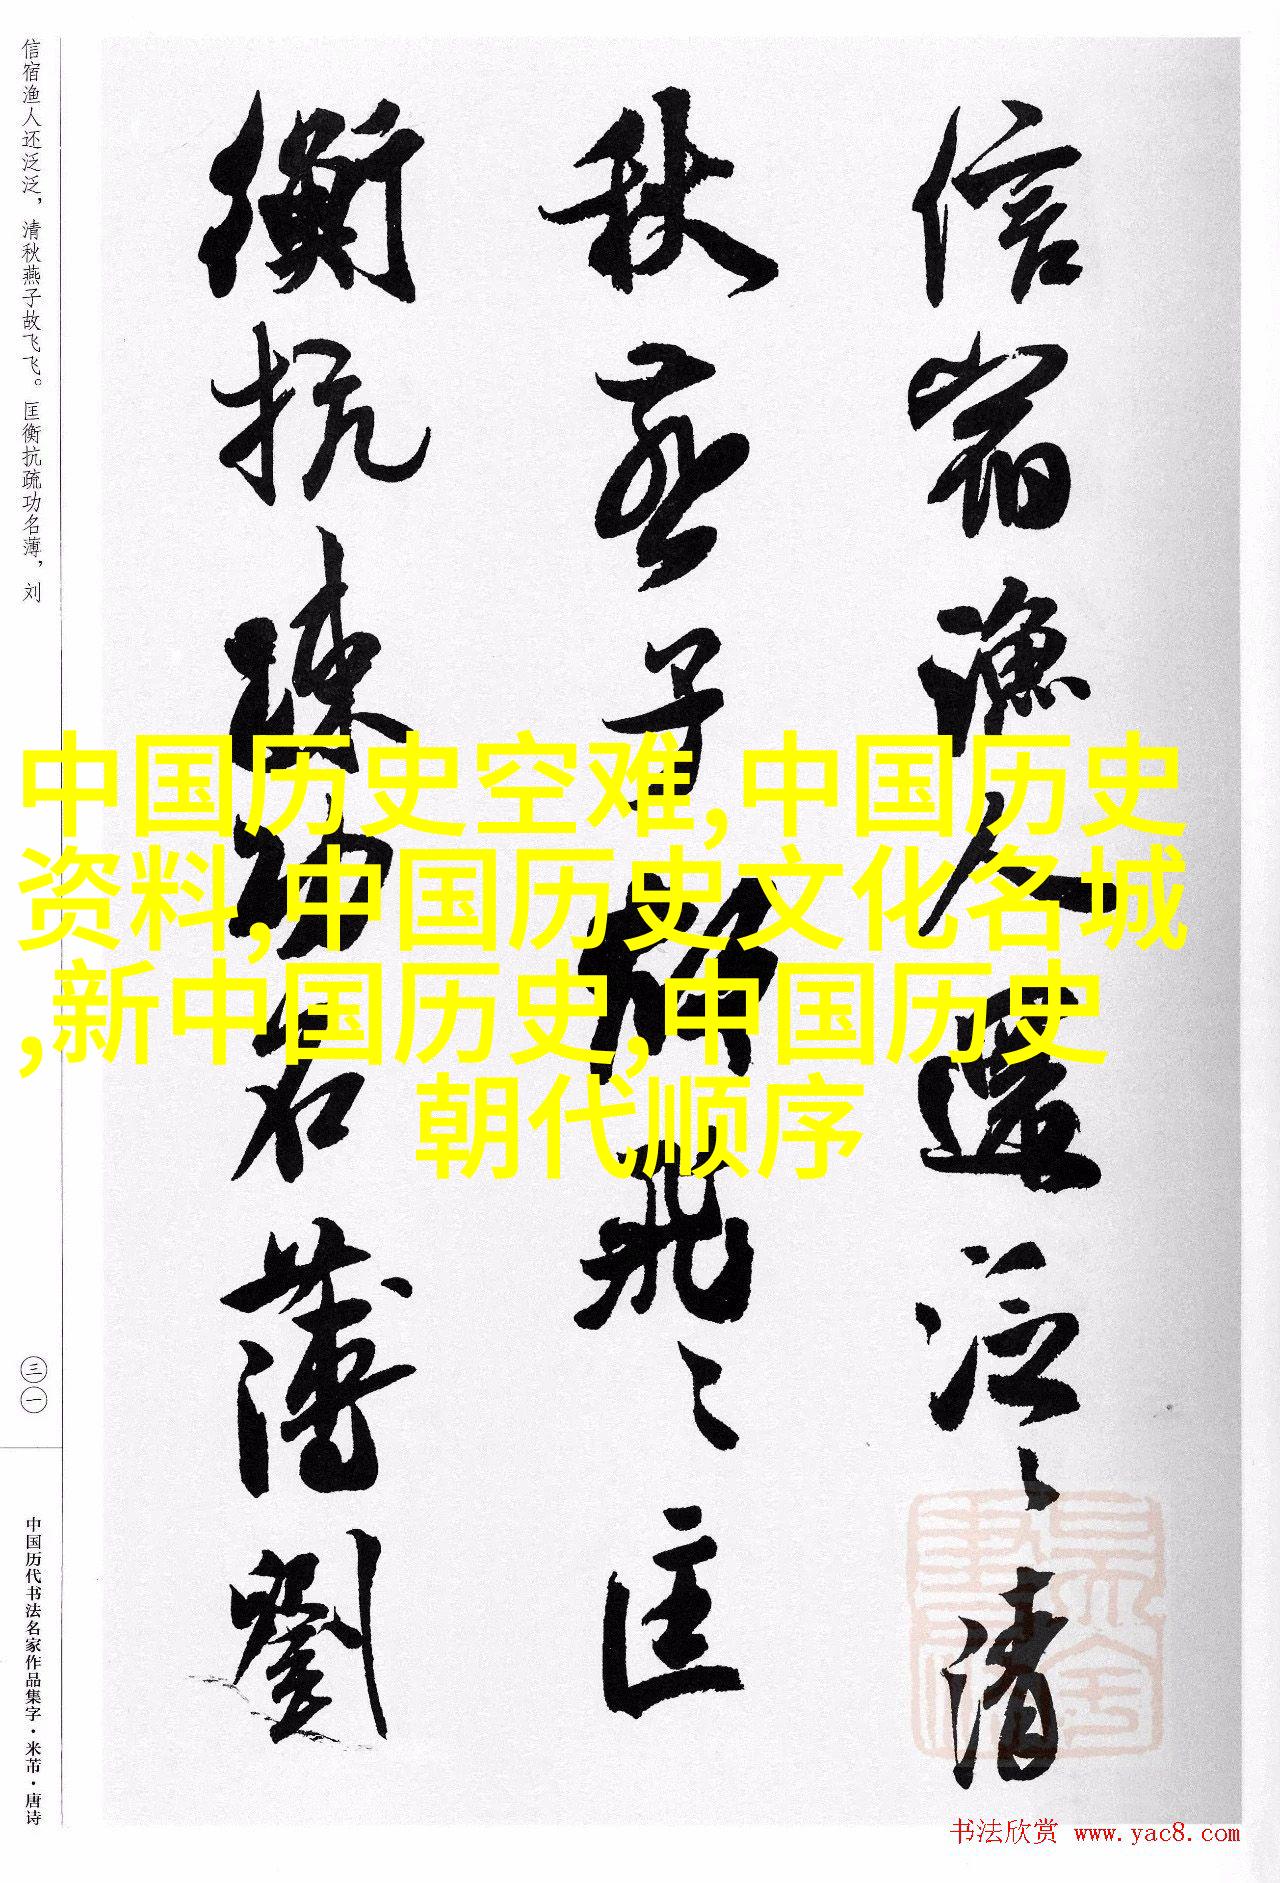 信宿渔人还泛泛，清秋燕子故飞飞。匡衡抗疏功名薄，刘
三一
中国历代书法名家作品集字·米芾·唐诗
信宿漁人還泛〻清
秋燕子故飛〻匡
衡抗疏功名薄劉
中国历史空难,中国历史
资料,中国历史文化名城
,新中国历史,中国历史
朝代顺序
书法欣赏 www.yac8.com